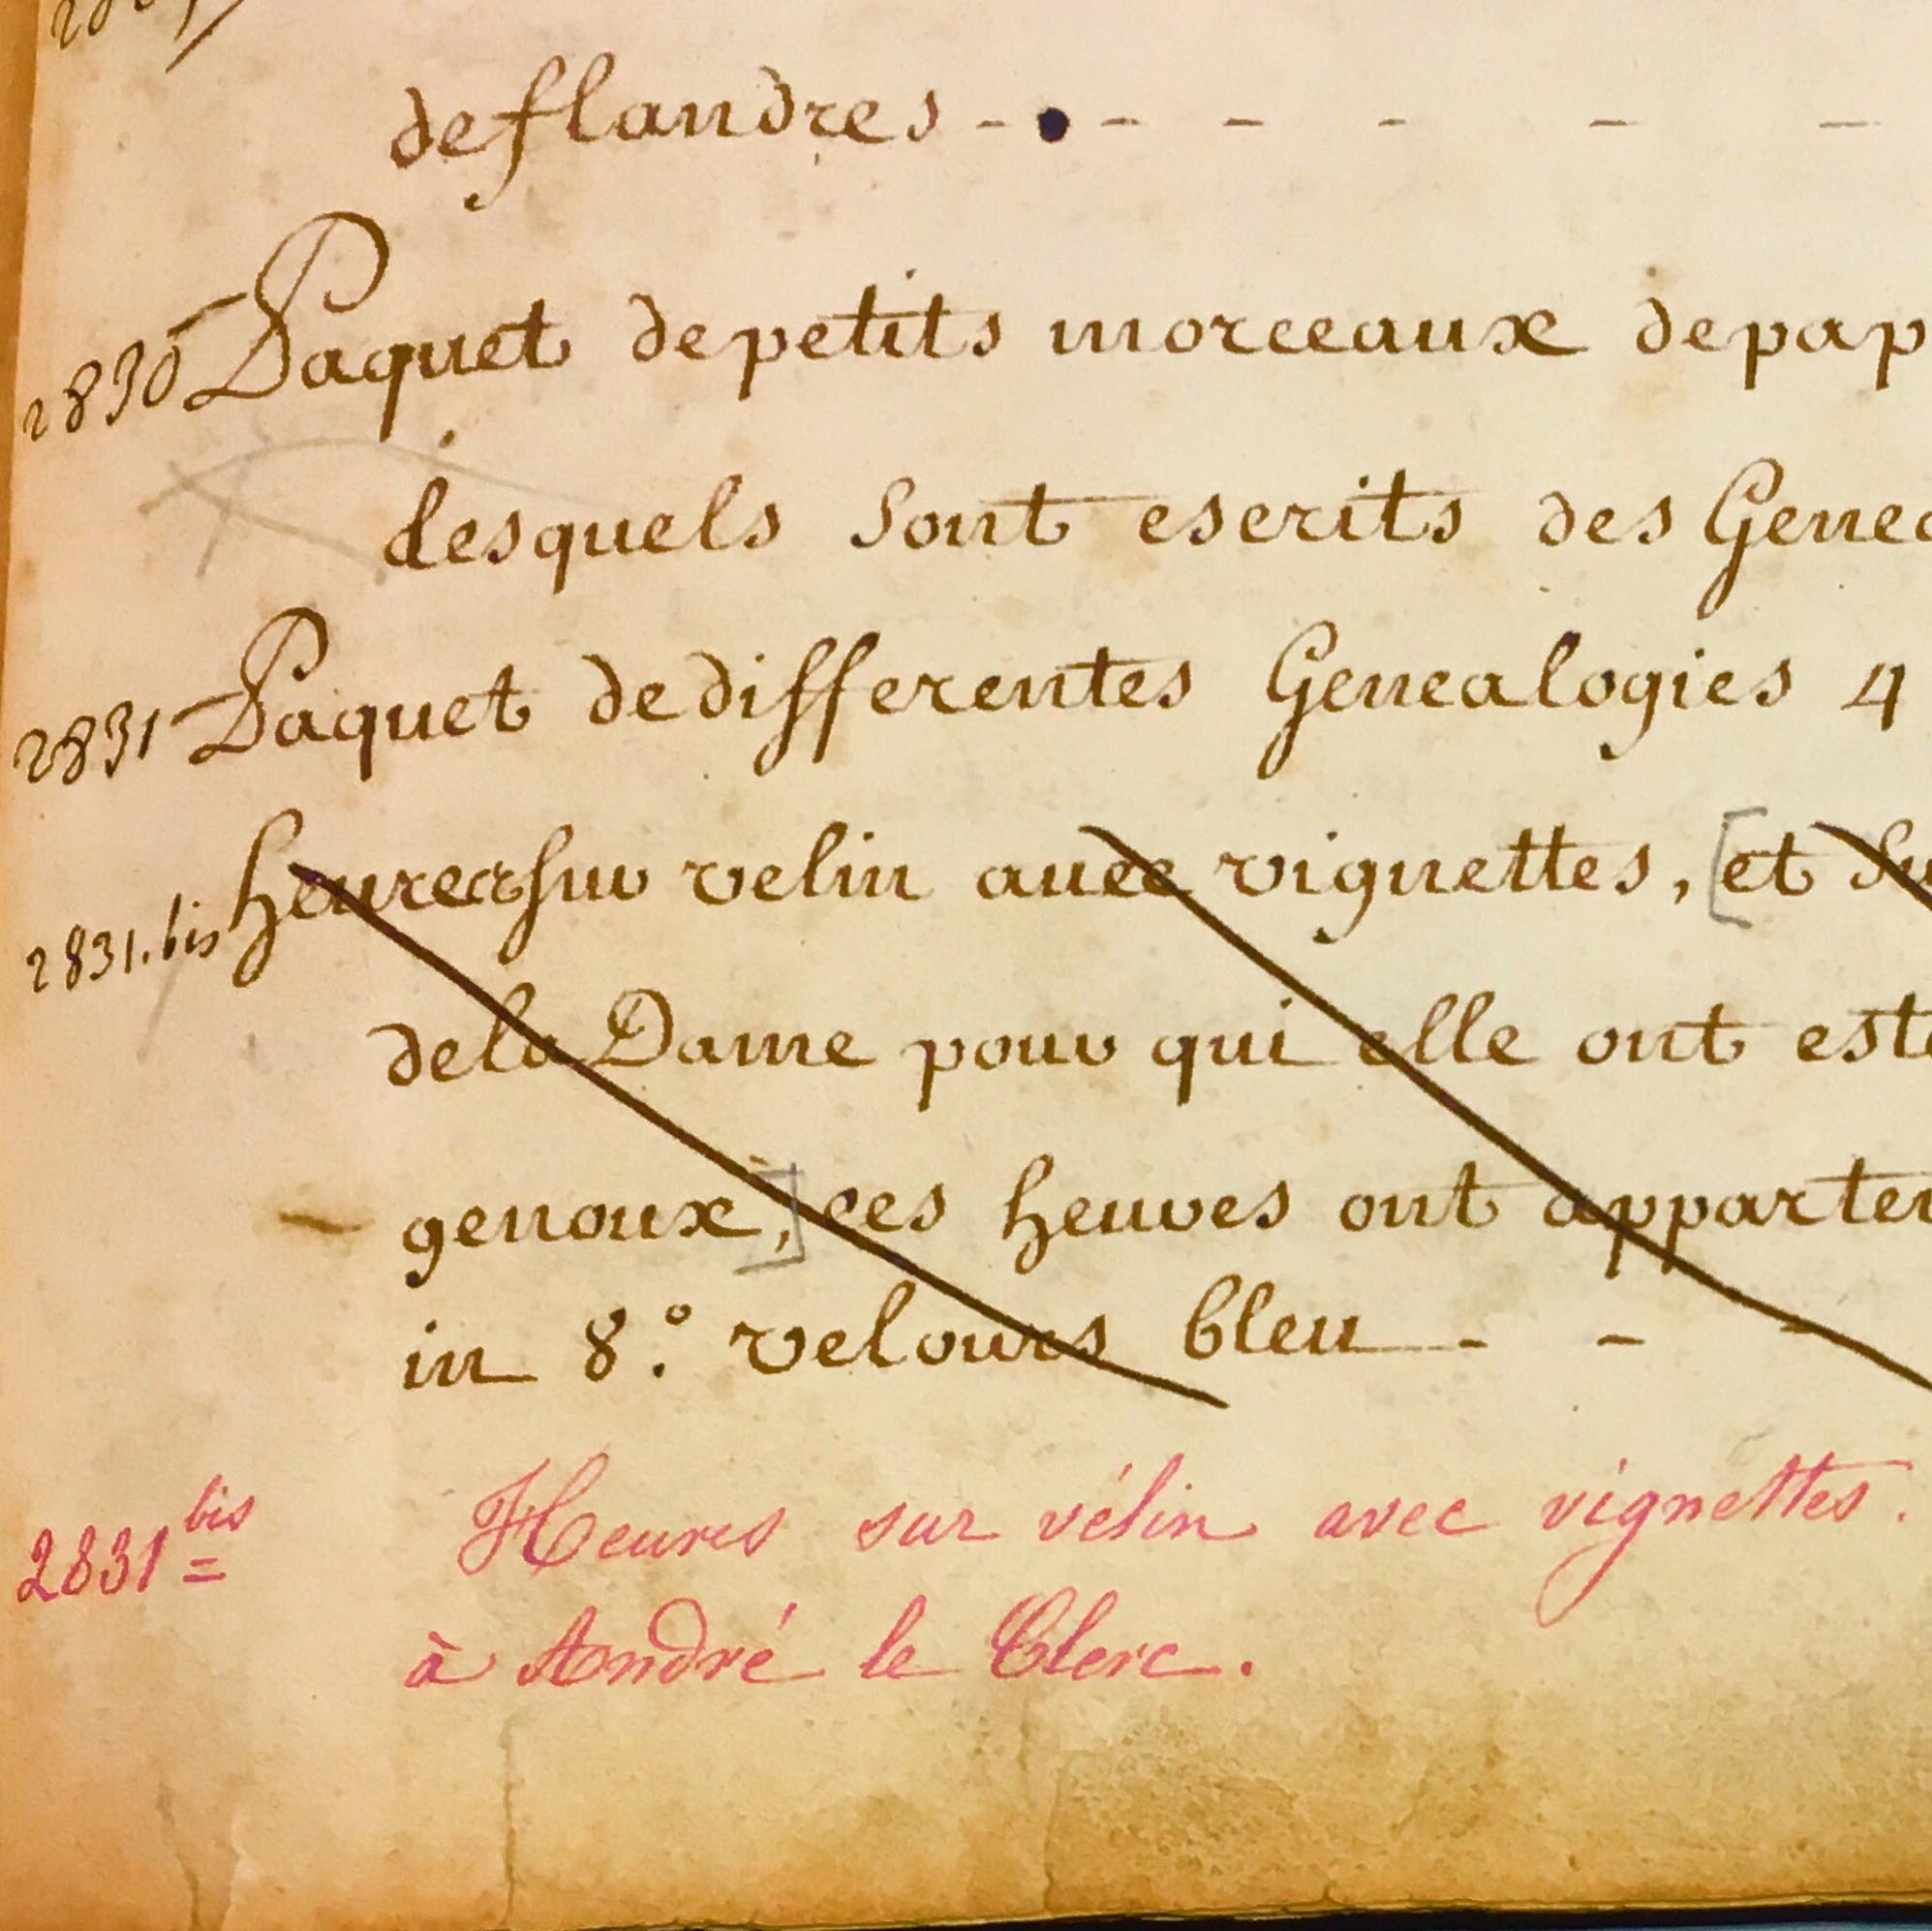 deflandres - - - - - -
2830 Paquet depetits morceaux depap
lesquels sont escrits des Genea
2831 Paquet dedifferentes Genealogies 4
2831.bis heures sur velin auec vignettes, [et su
dela Dame pour qui elle ont esté
genoux,] ces heures ont apparten
in 8.º velours bleu - - -
2831 bis Heures sur vélin avec vignettes.
à André le Clerc.